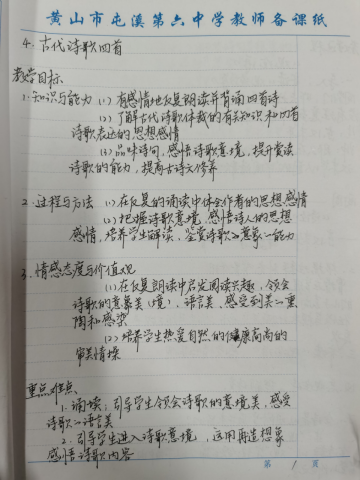 黄山市屯溪第六中学教师备课纸
4. 古代诗歌四首
教学目标
1. 知识与能力 (1) 有感情地反复朗读并背诵四首诗
(2) 了解古代诗歌体裁的有关知识和四首
诗歌表达的思想感情
(3) 品味诗句,感悟诗歌意境,提升赏读
诗歌的能力,提高古诗文修养
2. 过程与方法 (1) 在反复的诵读中体会作者的思想感情
(2) 把握诗歌意境,感悟诗人的思想
感情,培养学生解读、鉴赏诗歌之意象的能力
3. 情感态度与价值观
(1) 在反复朗读中启发阅读兴趣,领会
诗歌的意象美(境),语言美、感受到美的熏
陶和感染
(2) 培养学生热爱自然的健康高尚的
审美情操
重点难点
1. 诵读:引导学生领会诗歌的意境美,感受
诗歌的语言美
2. 引导学生进入诗歌意境,运用再造想象
感悟诗歌内容
第 1 页